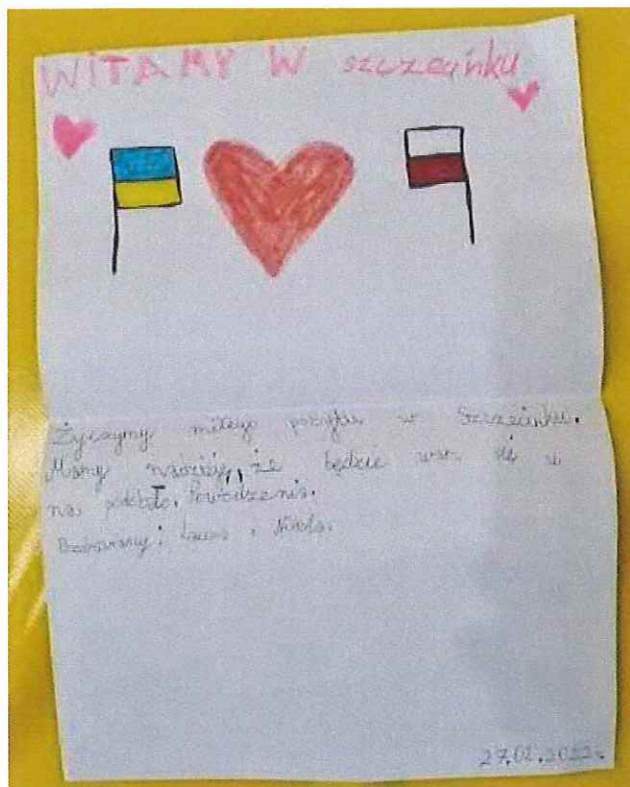 WITAMY W szczecinku
Życzymy miłego pobytu w Szczecinku.
Mamy nadzieję, że będzie wam się u
na podobało. Powodzenia.
i
27.02.2022r.